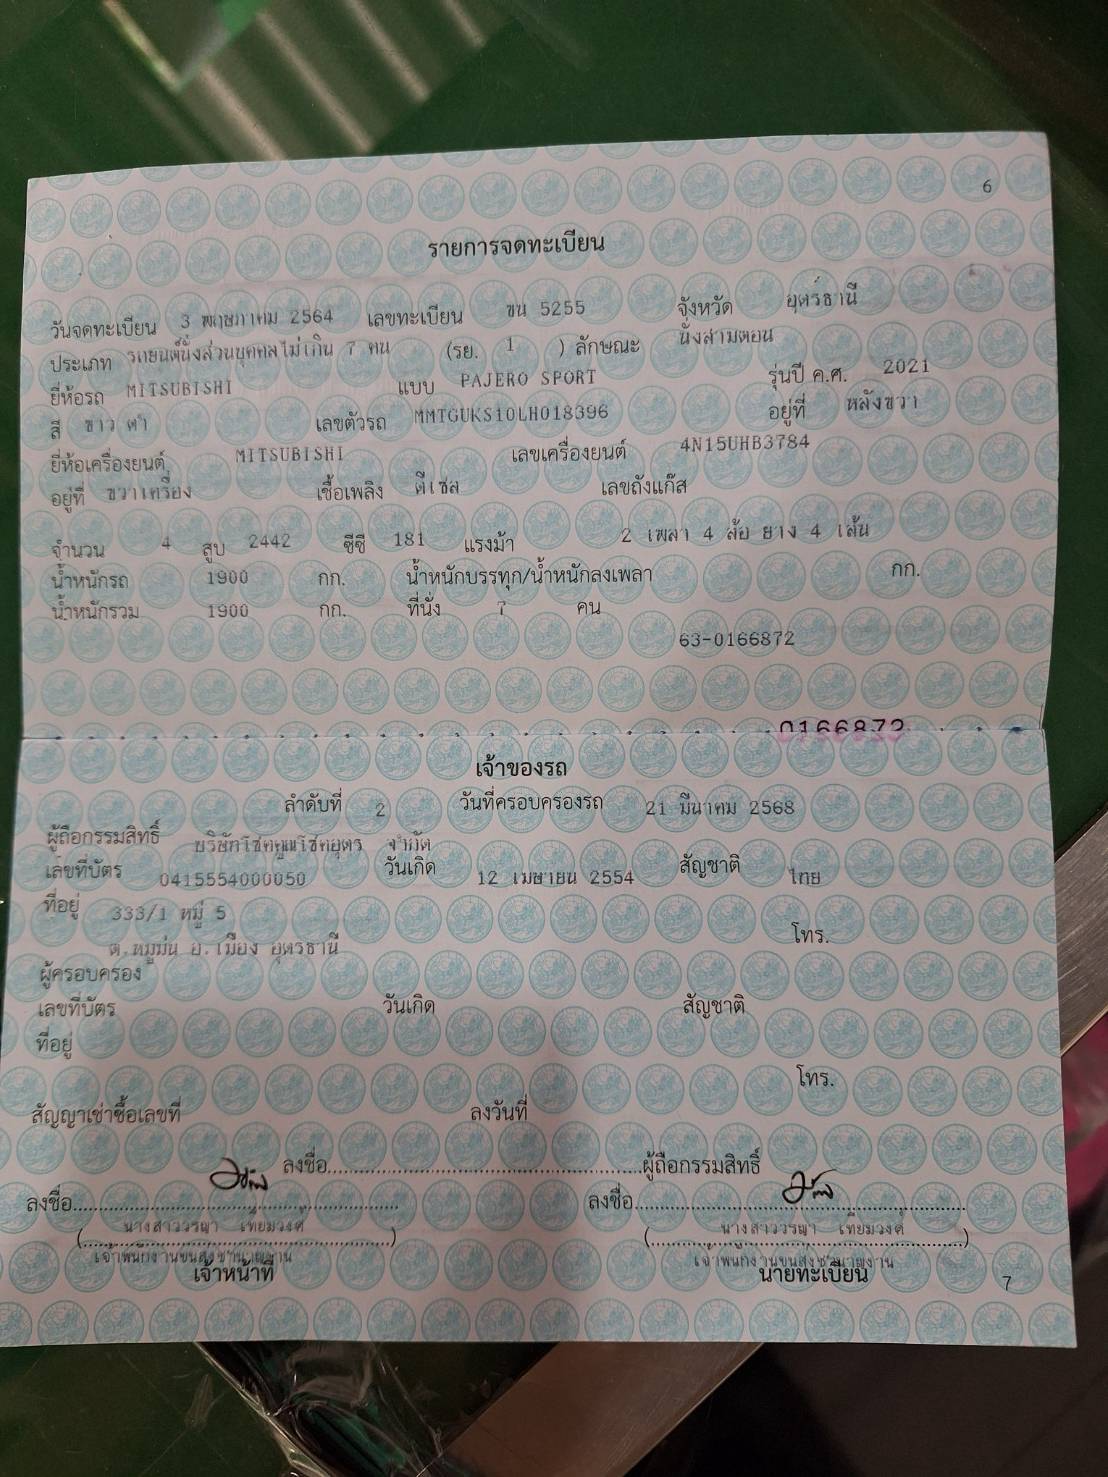 6
รายการจดทะเบียน
วันจดทะเบียน 3 พฤษภาคม 2564 เลขทะเบียน ขน 5255 จังหวัด อุดรธานี
ประเภท รถยนต์นั่งส่วนบุคคลไม่เกิน 7 คน (รย. 1 ) ลักษณะ นั่งสามตอน
ยี่ห้อรถ MITSUBISHI แบบ PAJERO SPORT รุ่นปี ค.ศ. 2021
สี ขาว ดำ เลขตัวรถ MMTGUKS10LH018396 อยู่ที่ หลังขวา
ยี่ห้อเครื่องยนต์ MITSUBISHI เลขเครื่องยนต์ 4N15UHB3784
อยู่ที่ ขวาเครื่อง เชื้อเพลิง ดีเซล เลขถังแก๊ส
จำนวน 4 สูบ 2442 ซีซี 181 แรงม้า 2 เพลา 4 ล้อ ยาง 4 เส้น
น้ำหนักรถ 1900 กก. น้ำหนักบรรทุก/น้ำหนักลงเพลา กก.
น้ำหนักรวม 1900 กก. ที่นั่ง 7 คน
63-0166872
0166872
เจ้าของรถ
ลำดับที่ 2 วันที่ครอบครองรถ 21 มีนาคม 2568
ผู้ถือกรรมสิทธิ์ บริษัทโชคคูณโชคอุดร จำกัด
เลขที่บัตร 0415554000050 วันเกิด 12 เมษายน 2554 สัญชาติ ไทย
ที่อยู่ 333/1 หมู่ 5
ต.หมูม่น อ.เมือง อุดรธานี โทร.
ผู้ครอบครอง
เลขที่บัตร วันเกิด สัญชาติ
ที่อยู่
โทร.
สัญญาเช่าซื้อเลขที่ ลงวันที่
ลงชื่อ ผู้ถือกรรมสิทธิ์
ลงชื่อ ลงชื่อ
(นางสาววรญา เทียมวงศ์) (นางสาววรญา เทียมวงศ์)
เจ้าพนักงานขนส่งชำนาญงาน เจ้าพนักงานขนส่งชำนาญงาน
เจ้าหน้าที่ นายทะเบียน
7